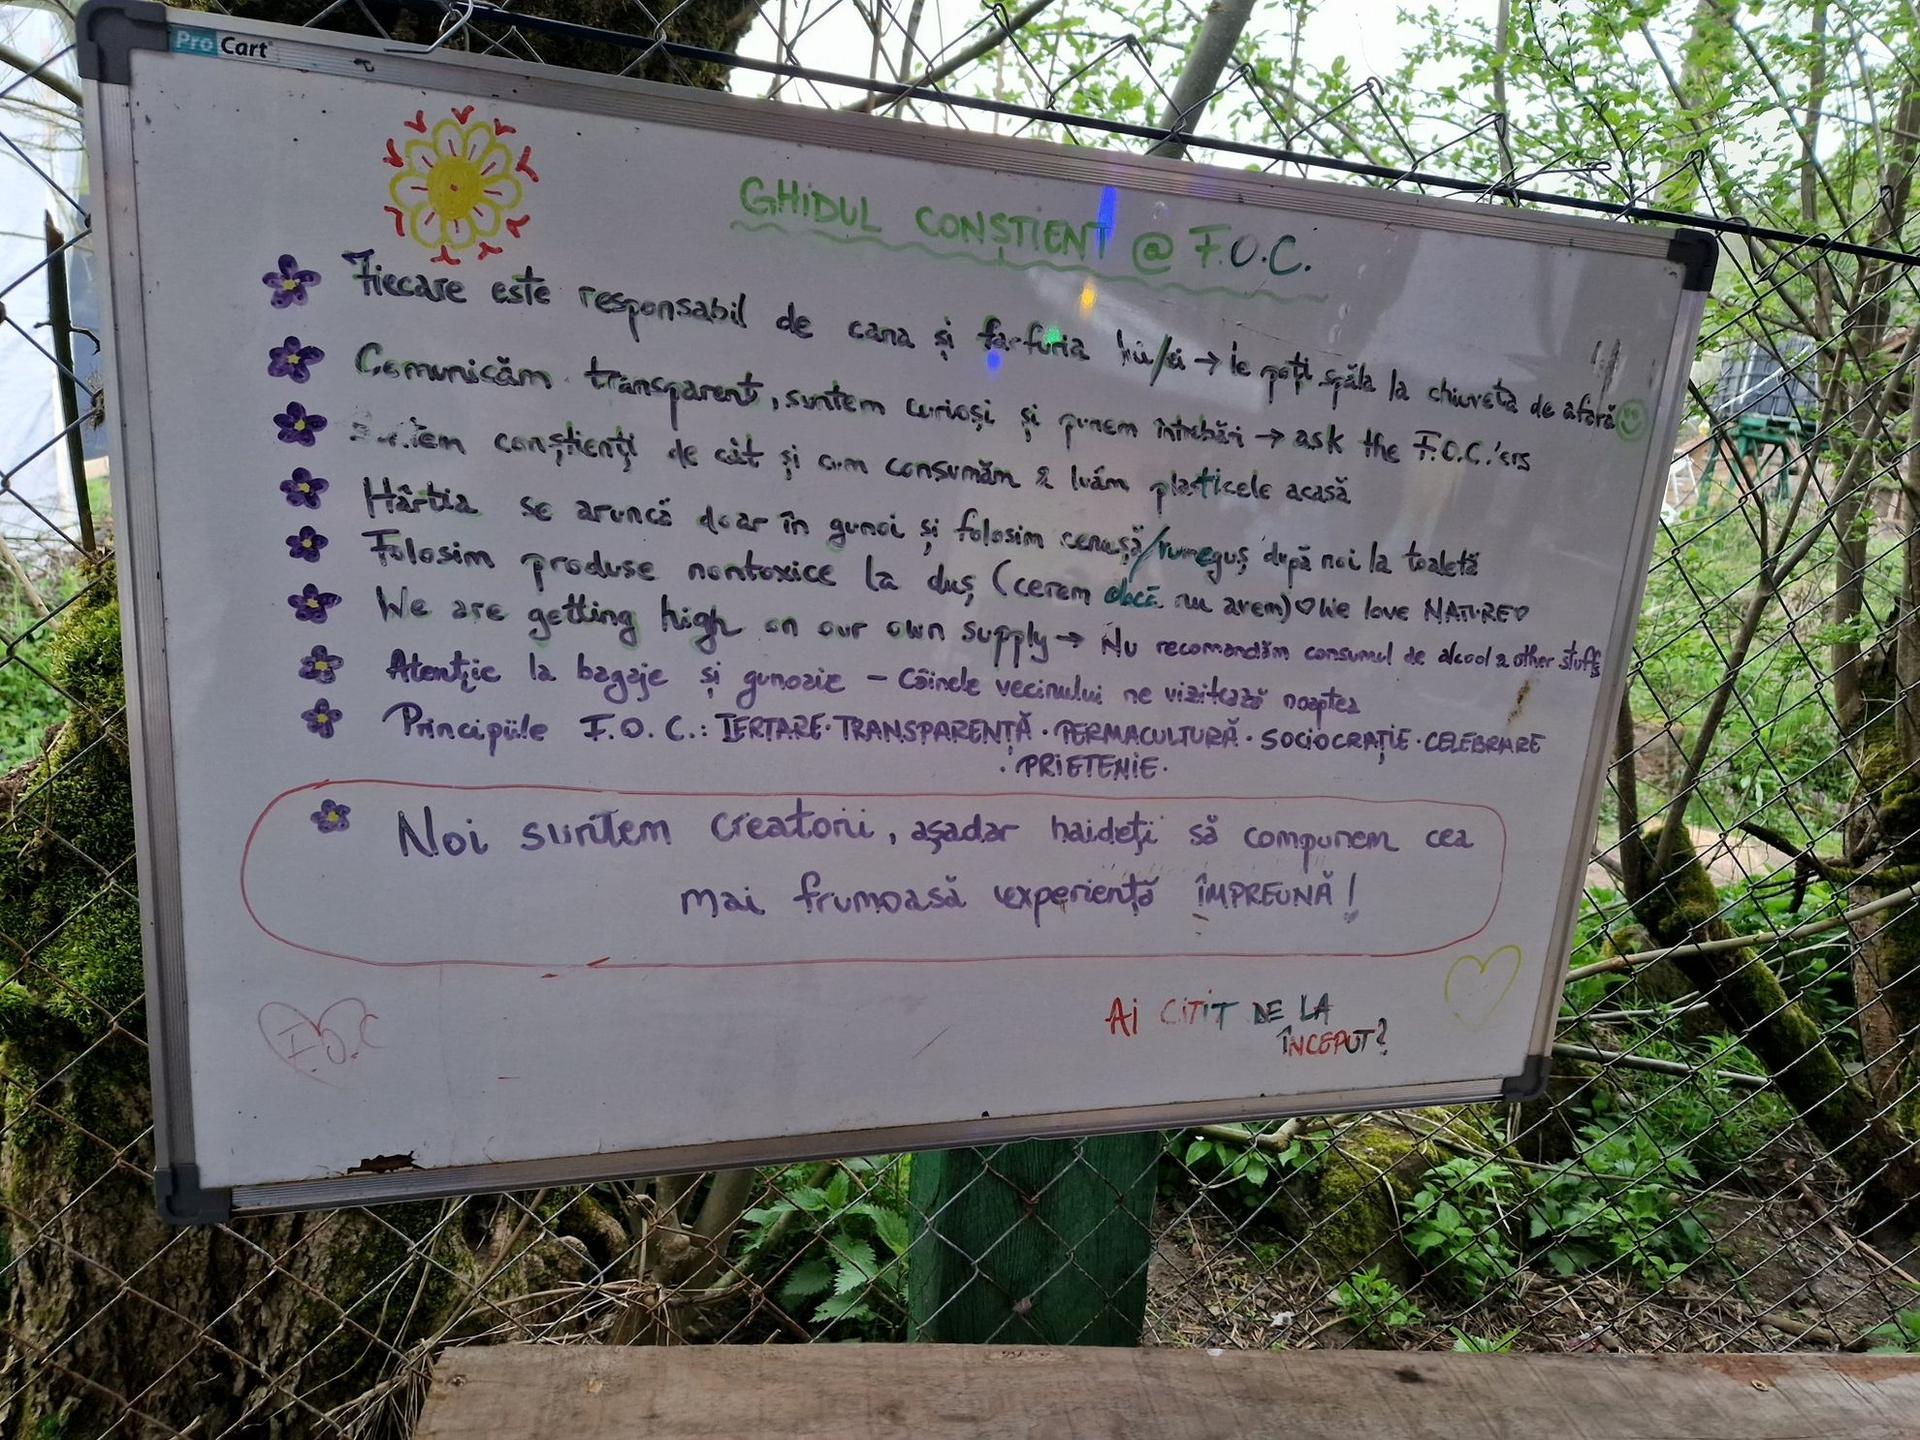 Pro Cart
GHIDUL CONȘTIENT @ F.O.C.
Fiecare este responsabil de cana și farfuria lui/ei → le poți spăla la chiuveta de afară
Comunicăm transparent, suntem curioși și punem întrebări → ask the F.O.C.'ers
Suntem conștienți de cât și cum consumăm & luăm plasticele acasă
Hârtia se aruncă doar în gunoi și folosim cenușă/rumeguș după noi la toaletă
Folosim produse nontoxice la duș (cerem dacă nu avem) ♡ We love NATURE ♡
We are getting high on our own supply → Nu recomandăm consumul de alcool & other stuffs
Atenție la bagaje și gunoaie - Câinele vecinului ne vizitează noaptea
Principiile F.O.C.: IERTARE · TRANSPARENȚĂ · PERMACULTURĂ · SOCIOCRAȚIE · CELEBRARE
· PRIETENIE ·
Noi suntem creatorii, așadar haideți să compunem cea
mai frumoasă experiență ÎMPREUNĂ!
F.O.C
Ai CITIT DE LA
ÎNCEPUT?